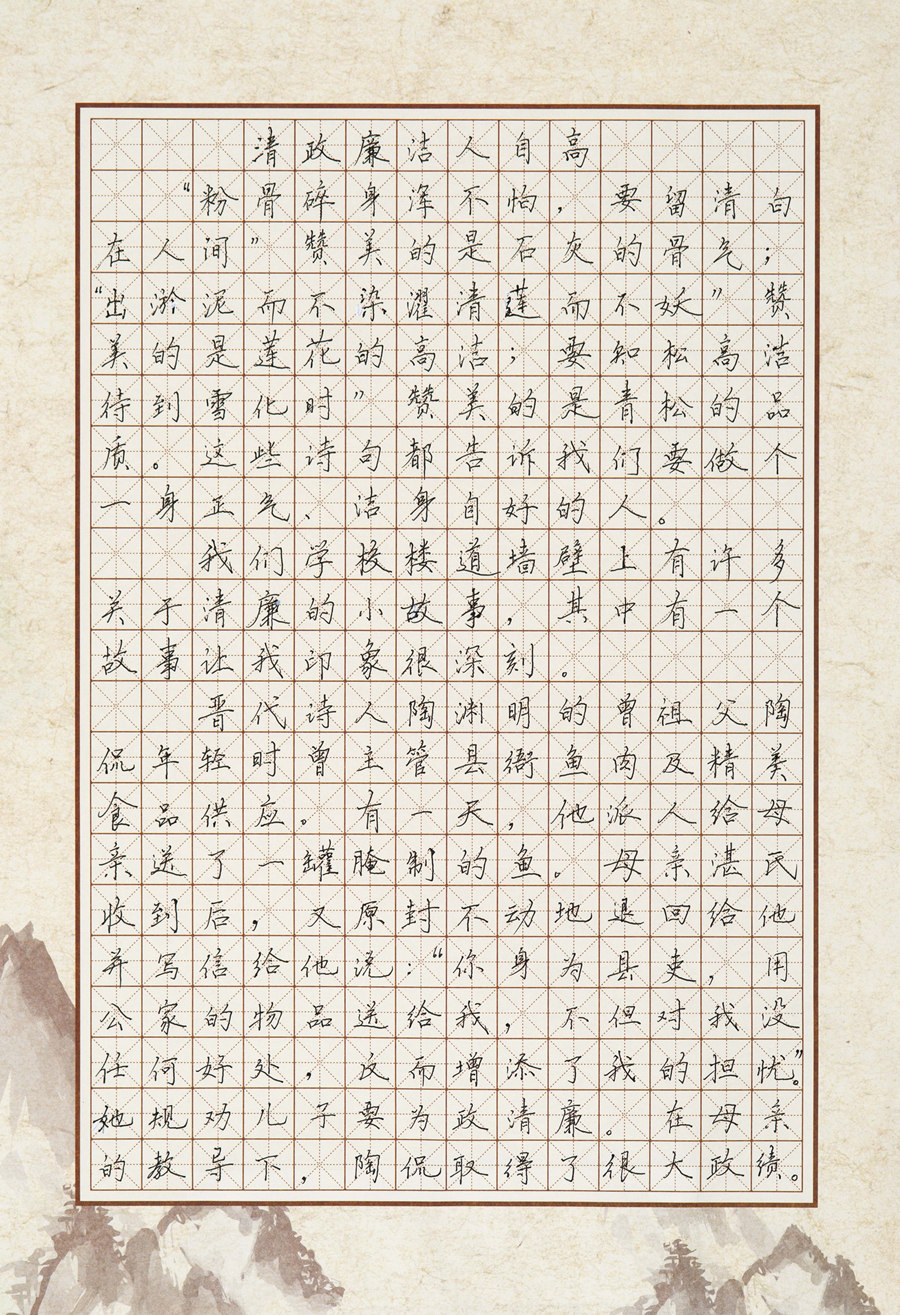 清政廉洁人自高
“粉骨碎身浑不怕，要留清白
在人间”赞美的是石灰的骨气；
“出淤泥而不染濯清莲而不妖”赞
美的是莲花的高洁；要知松高洁
待到雪化时”赞美的是青松的品
质。这些诗句都告诉我们要做个
一身正气、洁身自好的人。
我们学校楼道墙壁上有许多
关于清廉的小故事，其中有一个
故事让我印象很深刻。
晋代诗人陶渊明的曾祖父陶
侃年轻时曾主管县衙鱼肉及精美
食品供应。有一天，他派人给母
亲送了一罐腌制的鱼。母亲湛氏
收到后，又原封不动地退回给他
并写信给他说：“你身为县吏，用
公家的物品送给我，不但对我没
任何好处，反而增添了我的担忧”。
她规劝儿子要为政清廉。在母亲
的教导下，陶侃取得了很大政绩。